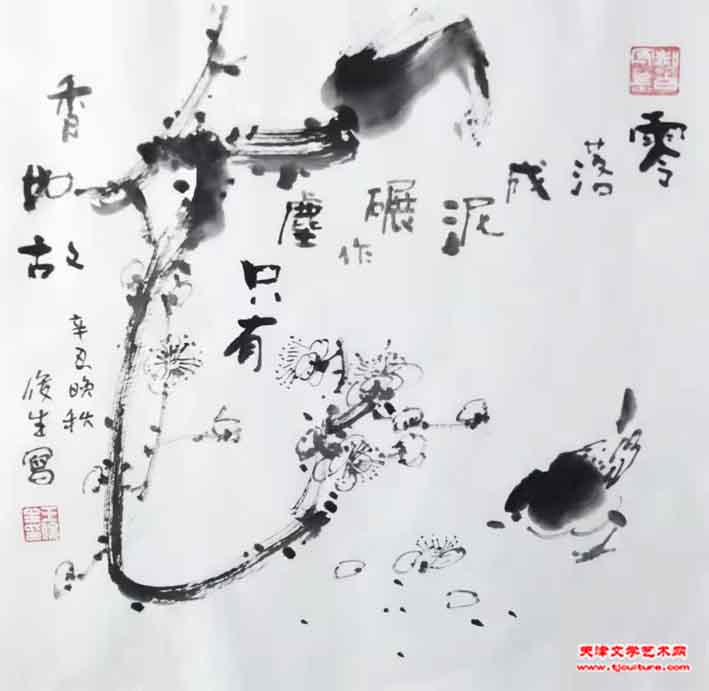 零落成泥碾作塵
只有
香如故
辛丑晚秋
俊生寫
天津文学艺术网
www.tjculture.com